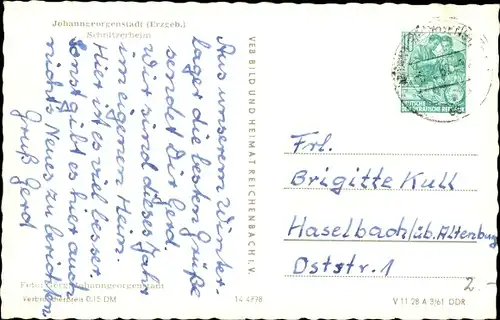 Johanngeorgenstadt (Erzgeb.)
Schnitzerheim
Aus unserem Winter-
lager die besten Grüße
sendet Dir Gerd.
Wir sind dieses Jahr
im eigenen Heim.
Hier ist es viel besser.
Sonst gibt es hier auch
nichts Neues zu berichten
Gruß Gerd
Johanngeorgenstadt
Verbraucherpreis 0,15 DM
14 4798
VEB BILD UND HEIMAT REICHENBACH I. V.
DEUTSCHE
DEMOKRATISCHE REPUBLIK
Frl.
Brigitte Kull
Haselbach/üb. Altenburg
Oststr. 1
2.-
V 11 28 A 3/61 DDR